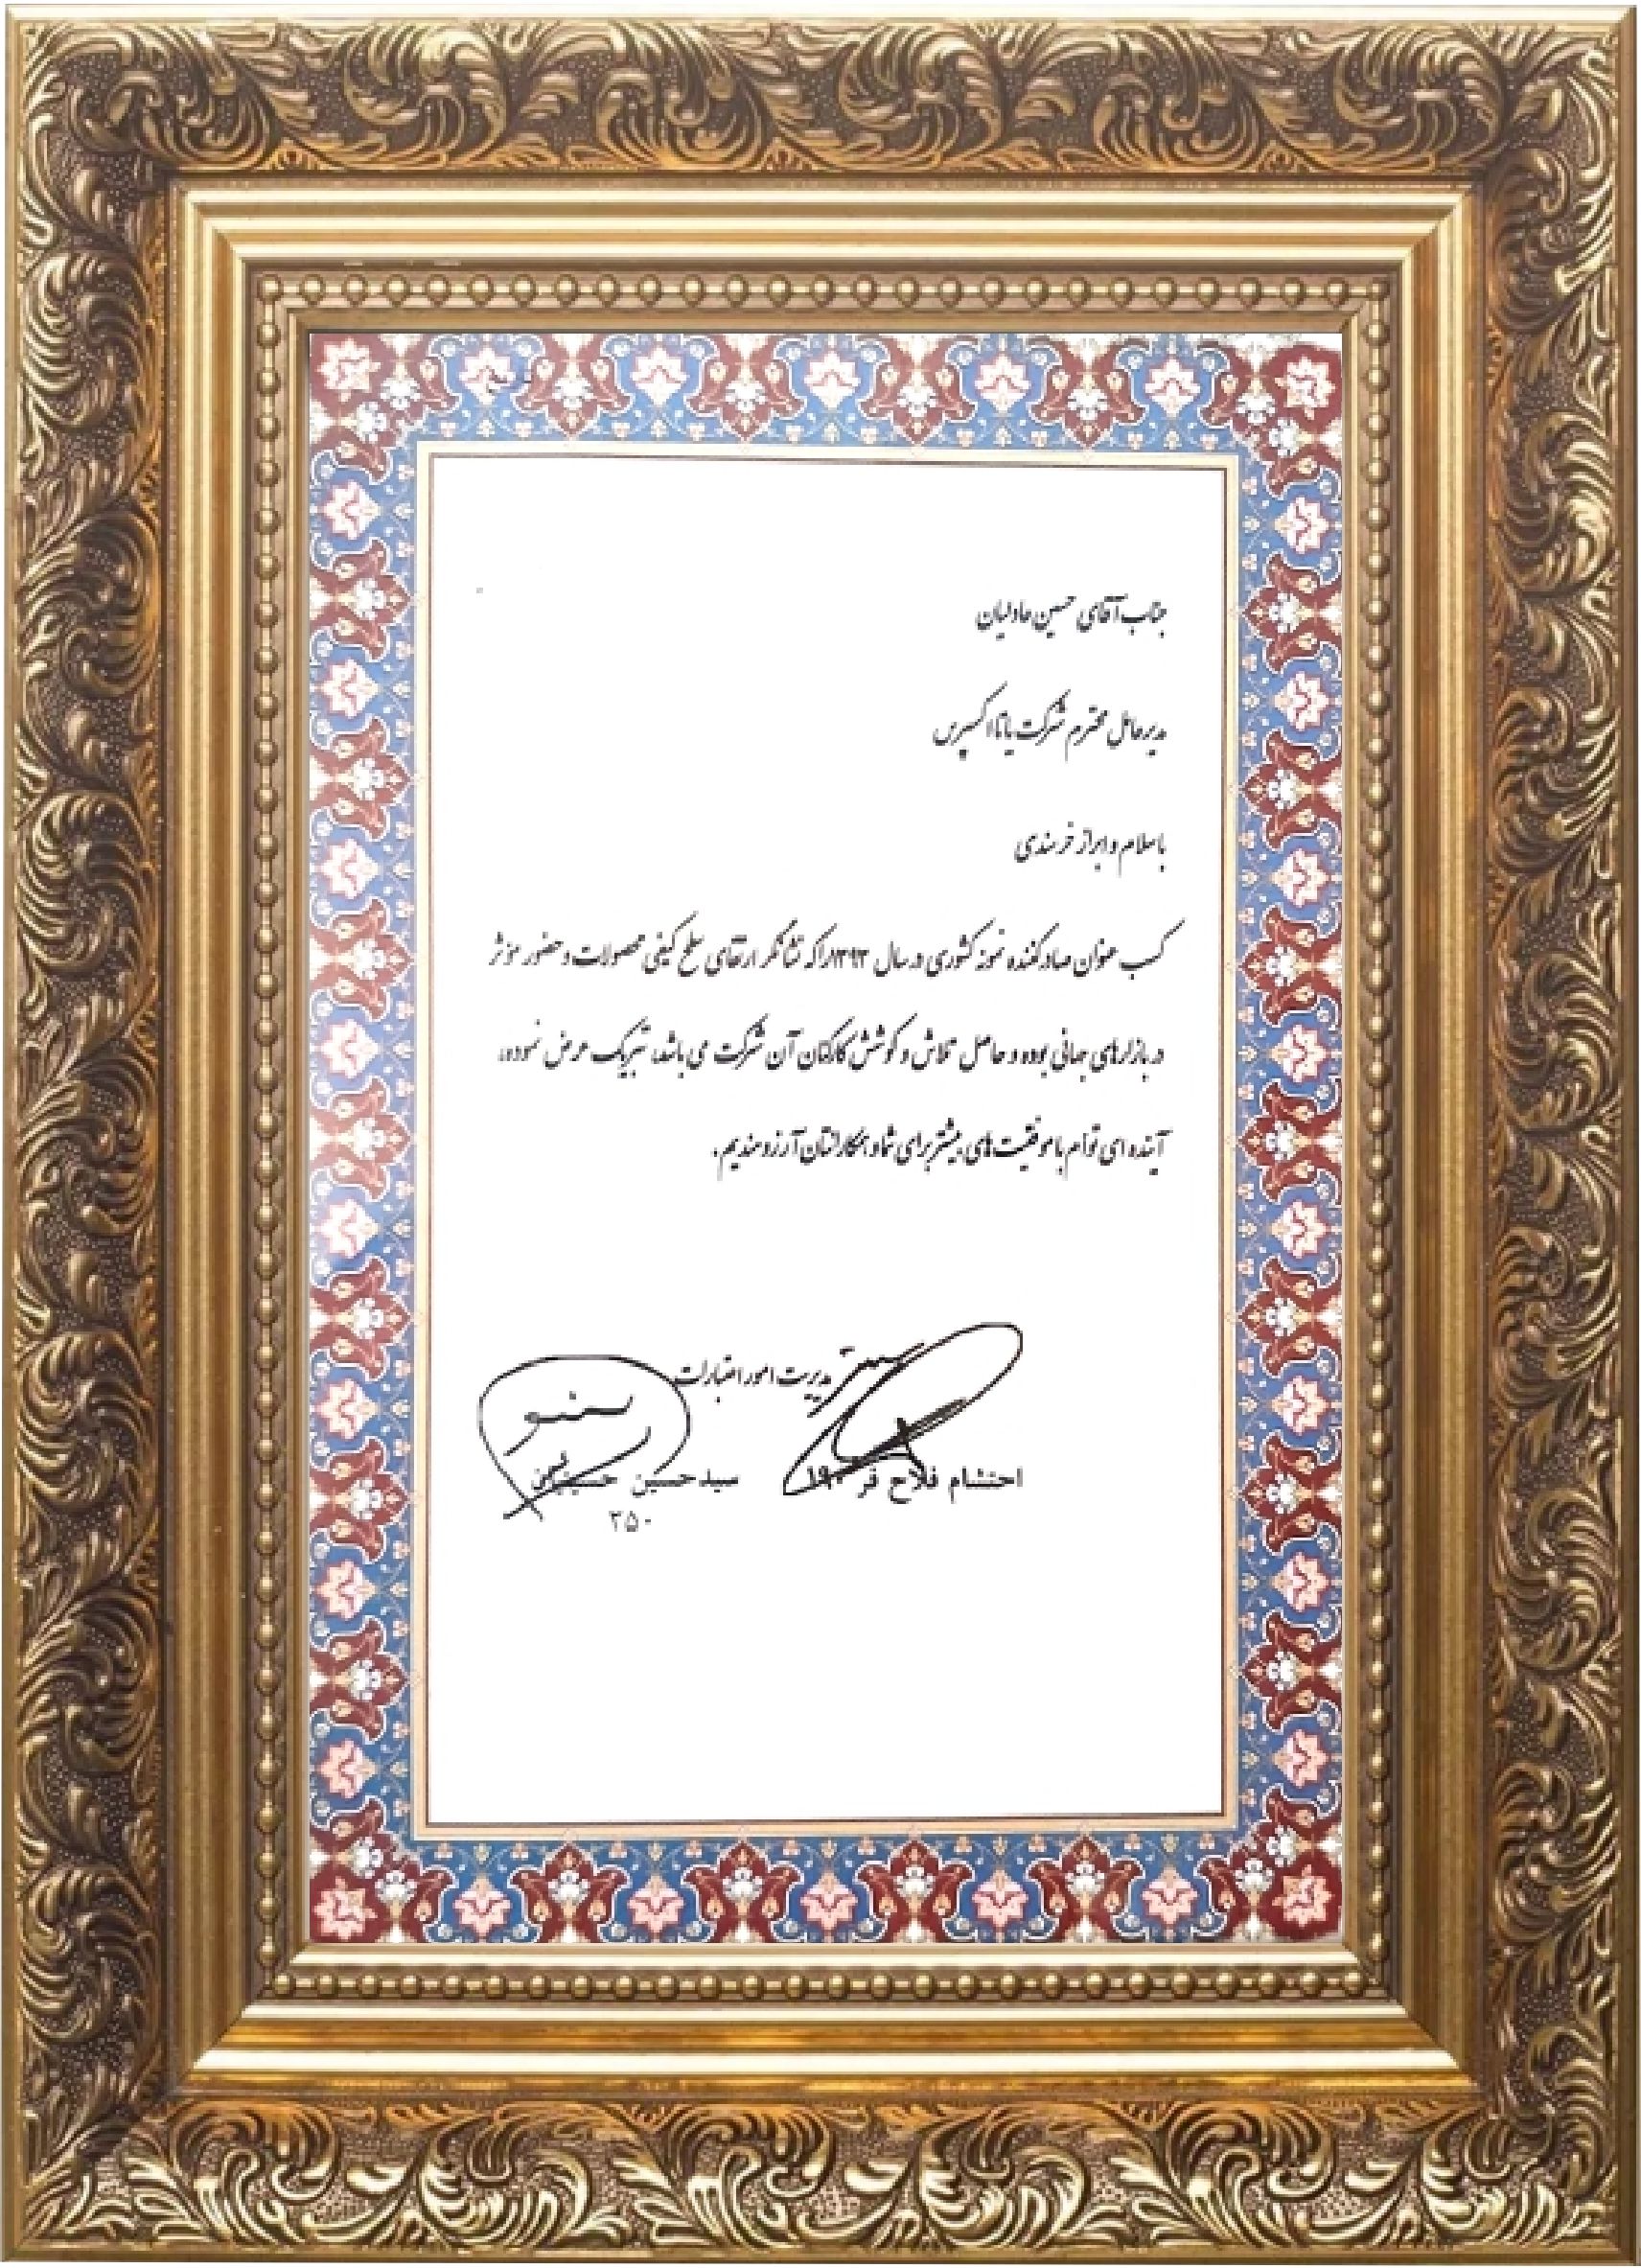 جناب آقای حسین عادلیان
مدیرعامل محترم شرکت یاتا اکسپرس
با سلام و ابراز خرسندی
کسب عنوان صادرکننده نمونه کشوری در سال ۱۳۹۳ را که نشانگر ارتقای سطح کیفی محصولات و حضور مؤثر
در بازارهای جهانی بوده و حاصل تلاش و کوشش کارکنان آن شرکت می باشد، تبریک عرض نموده،
آینده ای توأم با موفقیت های بیشتر برای شما و همکارانتان آرزومندیم.
مدیریت امور اعتبارات
احتشام فلاح فر ۱۹۰ سید حسین
۳۵۰